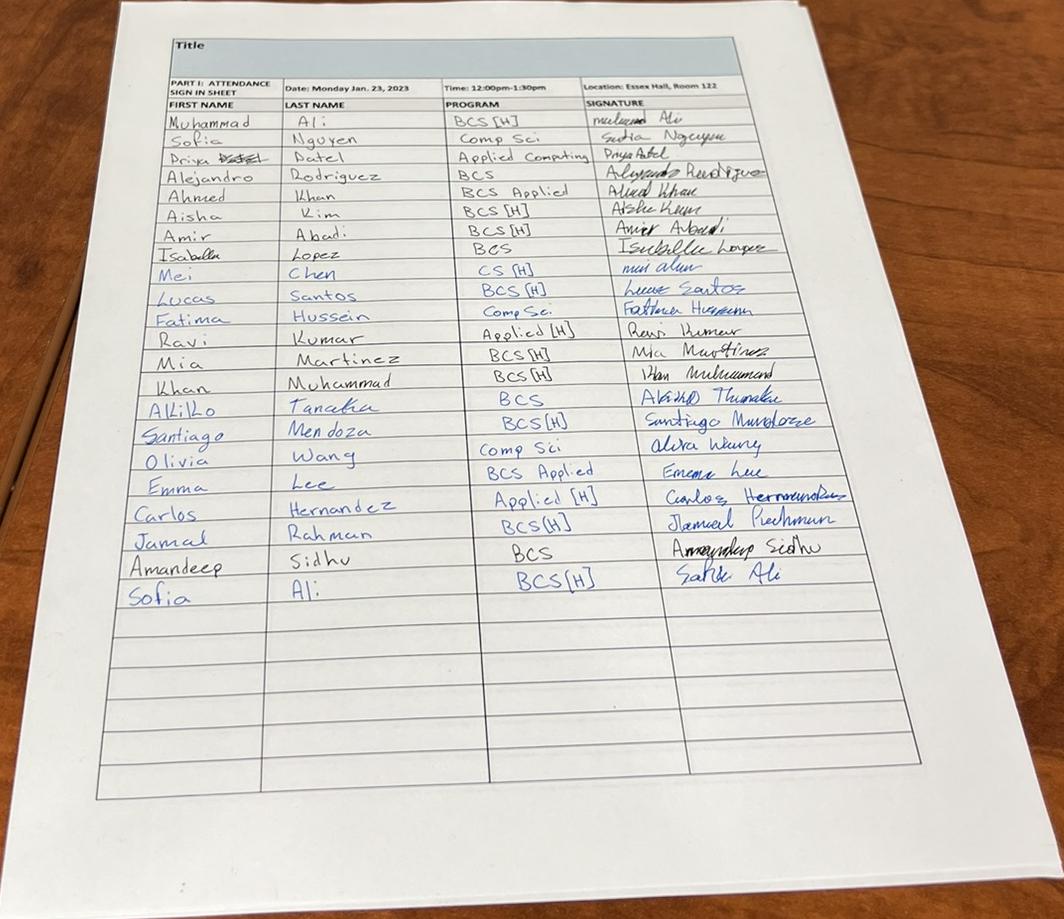 Title
PART I: ATTENDANCE SIGN IN SHEET Date: Monday Jan. 23, 2023 Time: 12:00pm-1:30pm Location: Essex Hall, Room 122
FIRST NAME LAST NAME PROGRAM SIGNATURE
Muhammad Ali BCS [H] Ali
Sofia Nguyen Comp Sci Sofia Nguyen
Priya Patel Applied Computing Priya Patel
Alejandro Rodriguez BCS Alejandro Rodriguez
Ahmed Khan BCS Applied Ahmed Khan
Aisha Kim BCS [H] Aisha Kim
Amir Abadi BCS [H] Amir Abadi
Isabella Lopez BCS Isabella Lopez
Mei Chen CS [H] mei chen
Lucas Santos BCS [H] Lucas Santos
Fatima Hussein Comp Sci Fatima Hussein
Ravi Kumar Applied [H] Ravi Kumar
Mia Martinez BCS [H] Mia Martinez
Khan Muhammad BCS [H] Khan Muhammad
Akiko Tanaka BCS
Santiago Mendoza BCS [H] Santiago
Olivia Wang Comp Sci Wang
Emma Lee BCS Applied Emma Lee
Carlos Hernandez Applied [H] Carlos Hernandez
Jamal Rahman BCS [H]
Amandeep Sidhu BCS Amandeep Sidhu
Sofia Ali BCS [H] Ali